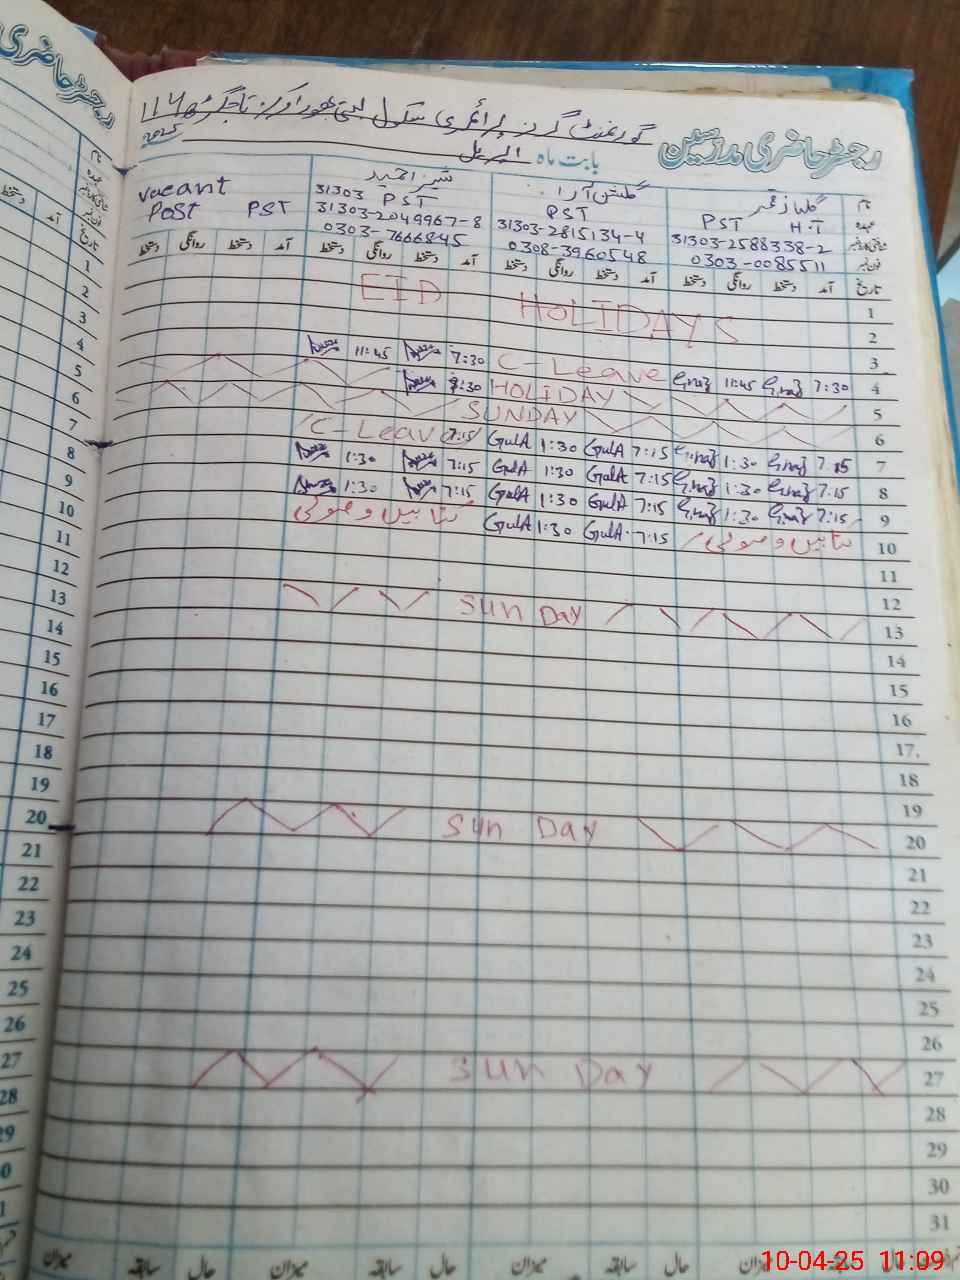 رجسٹر حاضری مدرسین
گورنمنٹ گرلز پرائمری سکول بستی
بابت ماہ اپریل 2025
نام
عہدہ
شناختی کارڈ نمبر
فون نمبر
PST H.T
31303-2588338-2
0303-0085511
گلشن آرا
PST
31303-2815134-4
0308-3960548
31303 PST
31303-2049967-8
0303-7666845
vacant
Post PST
تاریخ آمد دستخط روانگی دستخط آمد دستخط روانگی دستخط آمد دستخط روانگی دستخط آمد دستخط روانگی دستخط
1 EID HOLIDAYS
2
3
4 7:30 11:45 C-Leave 7:30 11:45
5 HOLIDAY
6 SUNDAY
7 7:15 1:30 7:15 GulA 1:30 GulA C-Leave 7:15
8 7:15 1:30 7:15 GulA 1:30 GulA 7:15 1:30
9 7:15 1:30 7:15 GulA 1:30 GulA 7:15 1:30
10 کتابیں وصولی 7:15 GulA 1:30 GulA کتابیں وصولی
11
12
13 Sun Day
14
15
16
17
18
19
20 Sun Day
21
22
23
24
25
26
27 Sun Day
28
29
30
31
حال سابقہ میزان حال سابقہ میزان حال سابقہ میزان حال سابقہ میزان
10-04-25 11:09
رجسٹر حاضری
نام
تاریخ
آمد
دستخط
1
2
3
4
5
6
7
8
9
10
11
12
13
14
15
16
17
18
19
20
21
22
23
24
25
26
27
28